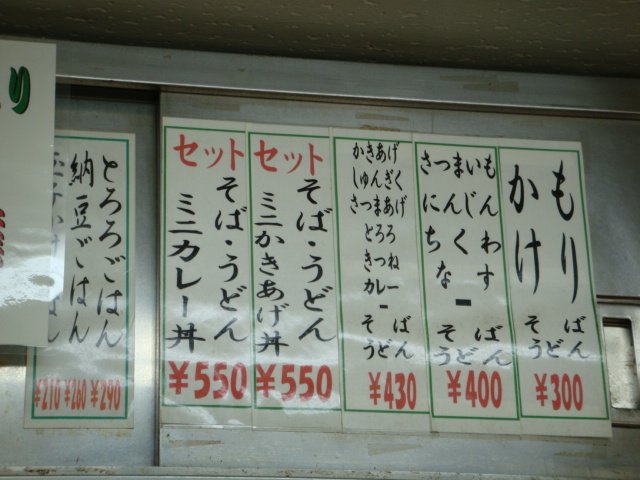 もり
かけ
そば
うどん
¥300
さつまいも
にんじん
ちくわ
なす
そば
うどん
¥400
かきあげ
しゅんぎく
さつまあげ
とろろ
きつね
カレー
そば
うどん
¥430
セット
そば・うどん
ミニかきあげ丼
¥550
セット
そば・うどん
ミニカレー丼
¥550
とろろごはん
納豆ごはん
¥290
¥260
¥210
り